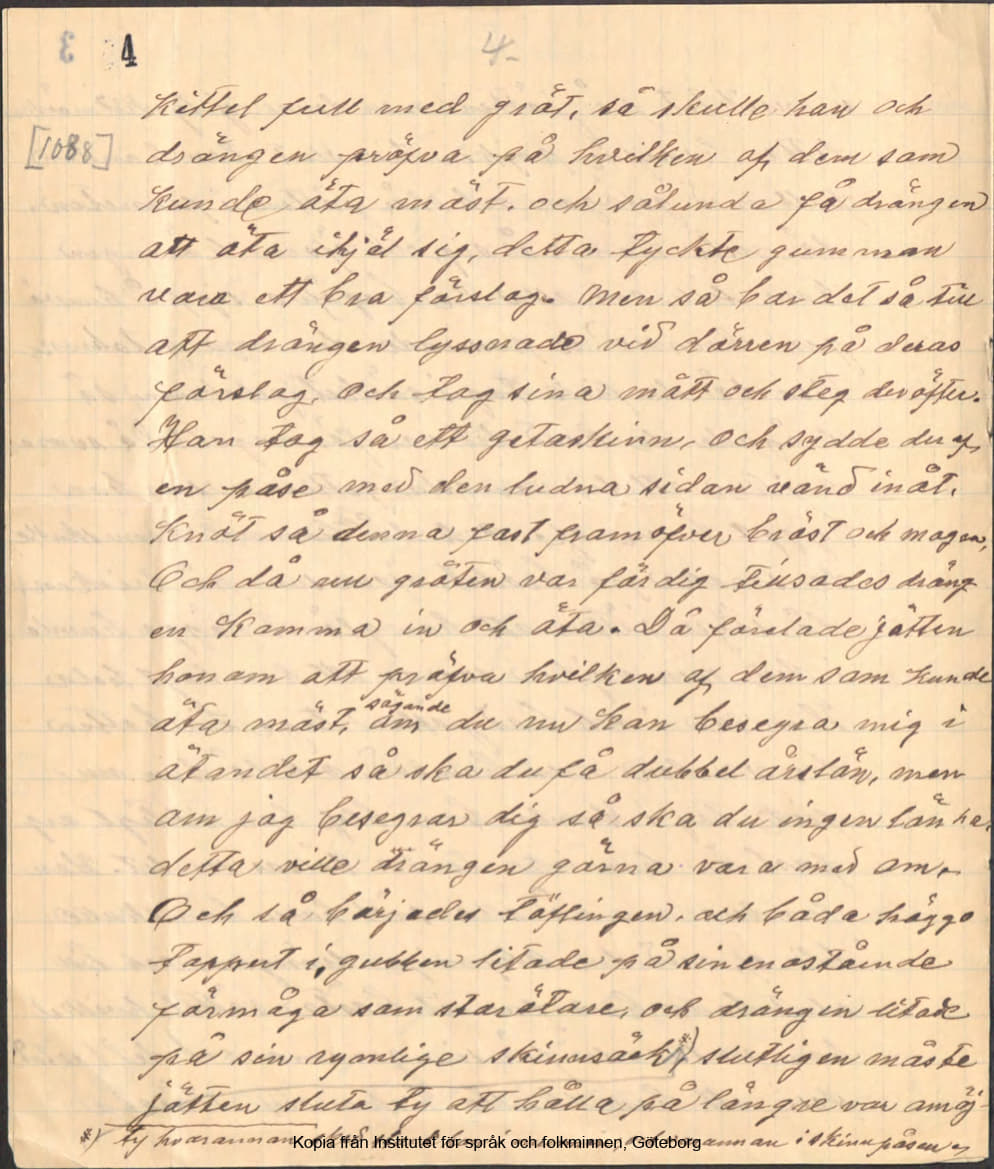 3 4 4-
Kittel full med gröt, så skulle han och
[1088] drängen pröfva på hvilken af dem som
kunde äta mäst. och sålunda få drängen
att äta ihjäl sig, detta tyckte gumman
vara ett bra förslag. Men så bar det så till
att drängen lyssnade vid dörren på deras
förslag, och tog sina mått och steg deröfter.
Han tog så ett getaskinn, och sydde du af
en påse med den ludna sidan vänd inåt.
Knöt så denna fast framöfver bröst och magen,
Och då nu gröten var färdig tillsades dräng
en Komma in och äta. Då föreslade jätten
honom att pröfva hvilken af dem som kunde
äta mäst, sägande om du nu kan besegra mig i
ätandet så ska du få dubbel årslön, men
om jag besegrar dig så ska du ingen lön ha,
detta ville drängen gärna vara med om.
Och så börjades täflingen. och båda höggo
tappert i, gubben litade på sin enastående
förmåga som storätare, och drängen litade
på sin rymlige skinnsäck, *) slutligen måste
jätten sluta ty att hålla på längre var omöj-
*) ty hvarannan i skinnpåsen
Kopia från Institutet för språk och folkminnen, Göteborg